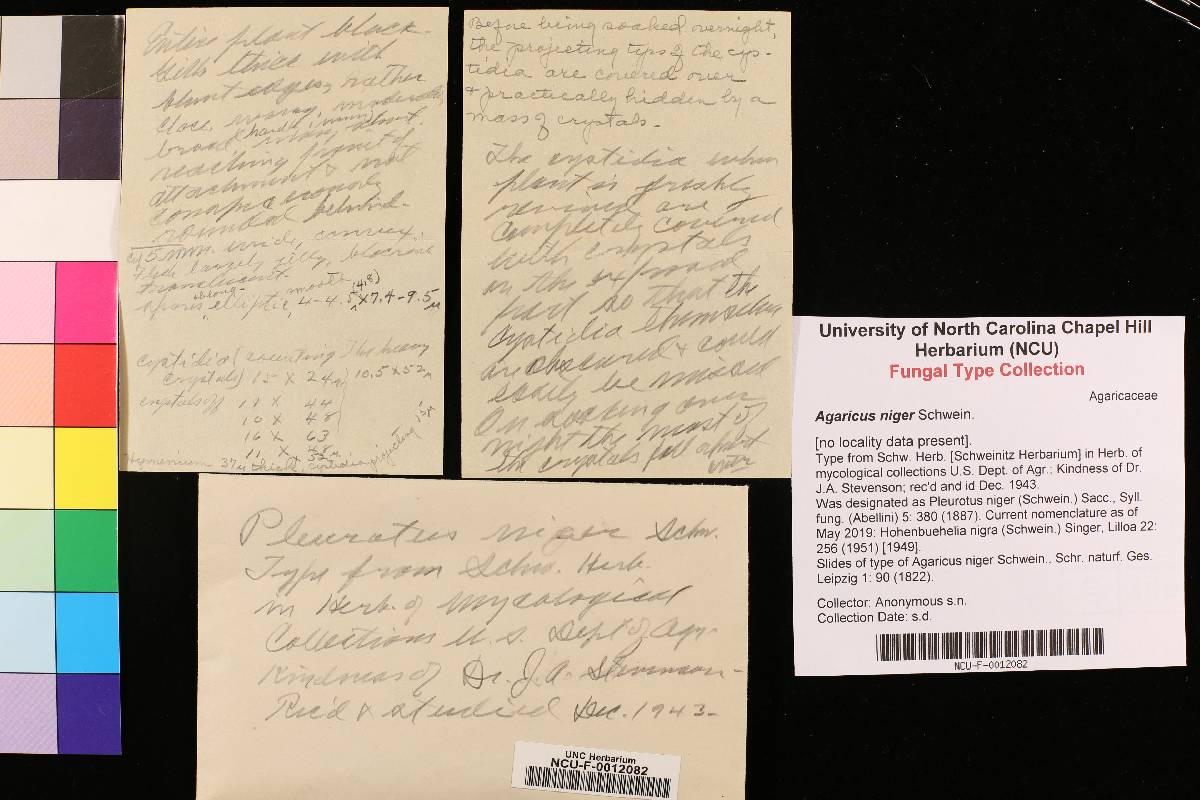 Entire plant black.
Gills thick with
blunt edges, rather
close, waxy, moderately
broad (hardly 1 mm) about
reaching point of
attachment & not
conspicuously
rounded behind.
Flesh
translucent
spores oblong elliptic, smooth, 4-4.5 (4.8) X 7.4-9.5 µ
cystidia (counting the heavy
crystals) 15 X 24 µ 10.5 X 52 µ
crystals off 44
10 X 48
16 X 63
Hymenium 37 µ thick, cystidia projecting 15 µ
Before being soaked overnight,
the projecting tips of the cys-
tidia are covered over
& practically hidden by a
mass of crystals.
The cystidia when
plant is freshly
revived are
completely covered
with crystals
on the exposed
part so that the
cystidia themselves
are obscured & could
easily be missed
On soaking over
night the most of
the crystals fall apart
Pleurotus niger Schw.
Type from Schw. Herb.
in Herb. of Mycological
Collections U.S. Dept of Agr.
Kindness of Dr. J.A. Stevenson-
Rec'd & studied Dec. 1943-
UNC Herbarium
NCU-F-0012082
University of North Carolina Chapel Hill
Herbarium (NCU)
Fungal Type Collection
Agaricaceae
Agaricus niger Schwein.
[no locality data present].
Type from Schw. Herb. [Schweinitz Herbarium] in Herb. of
mycological collections U.S. Dept. of Agr.; Kindness of Dr.
J.A. Stevenson; rec'd and id Dec. 1943.
Was designated as Pleurotus niger (Schwein.) Sacc., Syll.
fung. (Abellini) 5: 380 (1887). Current nomenclature as of
May 2019: Hohenbuehelia nigra (Schwein.) Singer, Lilloa 22:
256 (1951) [1949].
Slides of type of Agaricus niger Schwein., Schr. naturf. Ges.
Leipzig 1: 90 (1822).
Collector: Anonymous s.n.
Collection Date: s.d.
NCU-F-0012082